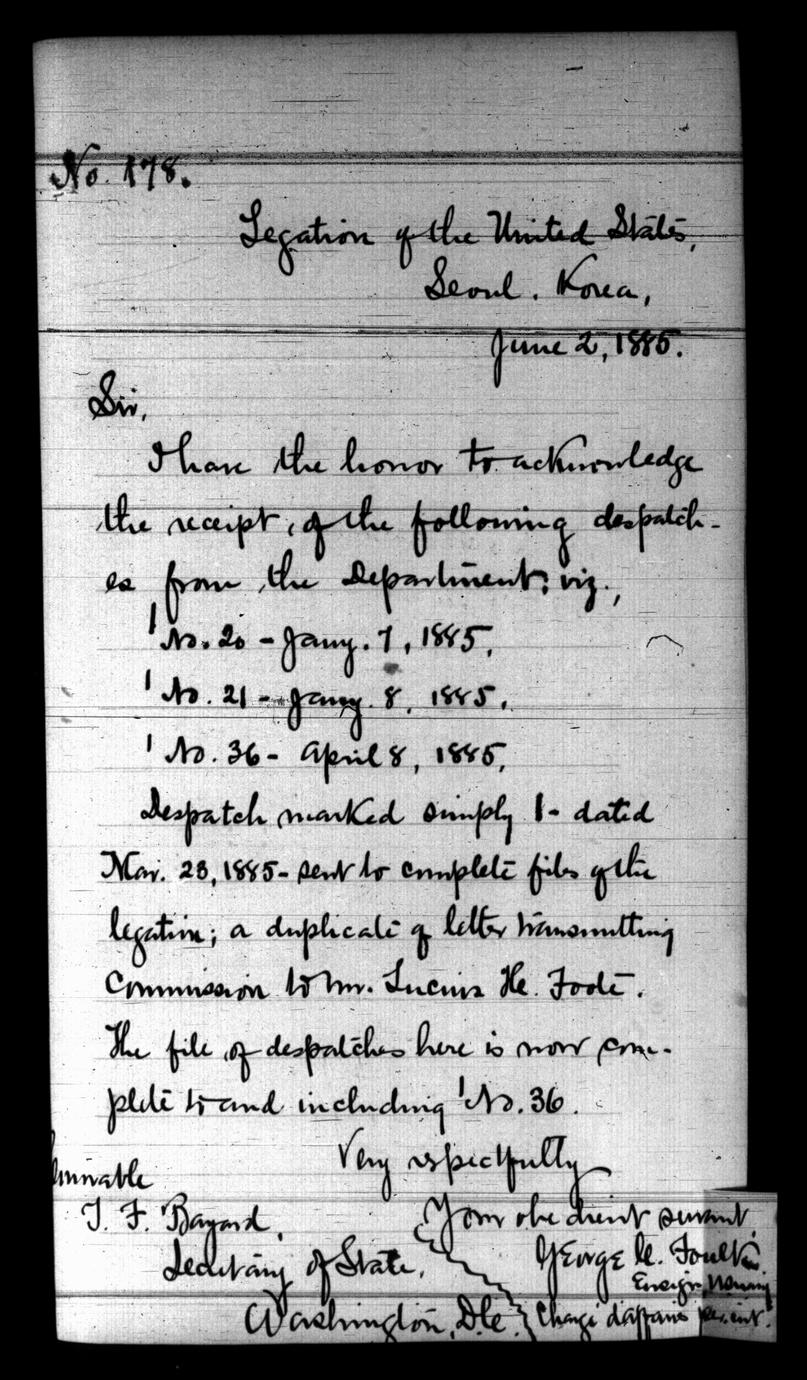 No. 178.
Legation of the United States,
Seoul. Korea,
June 2, 1885.
Sir,
I have the honor to acknowledge
the receipt, of the following despatch-
es from the Department; viz.,
No. 20 - Jany. 7, 1885,
No. 21 - Jany. 8, 1885,
No. 36 - April 8, 1885,
Despatch marked simply 1 - dated
Mar. 23, 1885 - sent to complete files of the
legation; a duplicate of letter transmitting
Commission to Mr. Lucius H. Foote.
The file of despatches here is now com-
plete to and including No. 36.
Very respectfully
Your obedient servant,
George C. Foulk
Ensign
Chargé d'affaires
T. F. Bayard,
Secretary of State,
Washington,